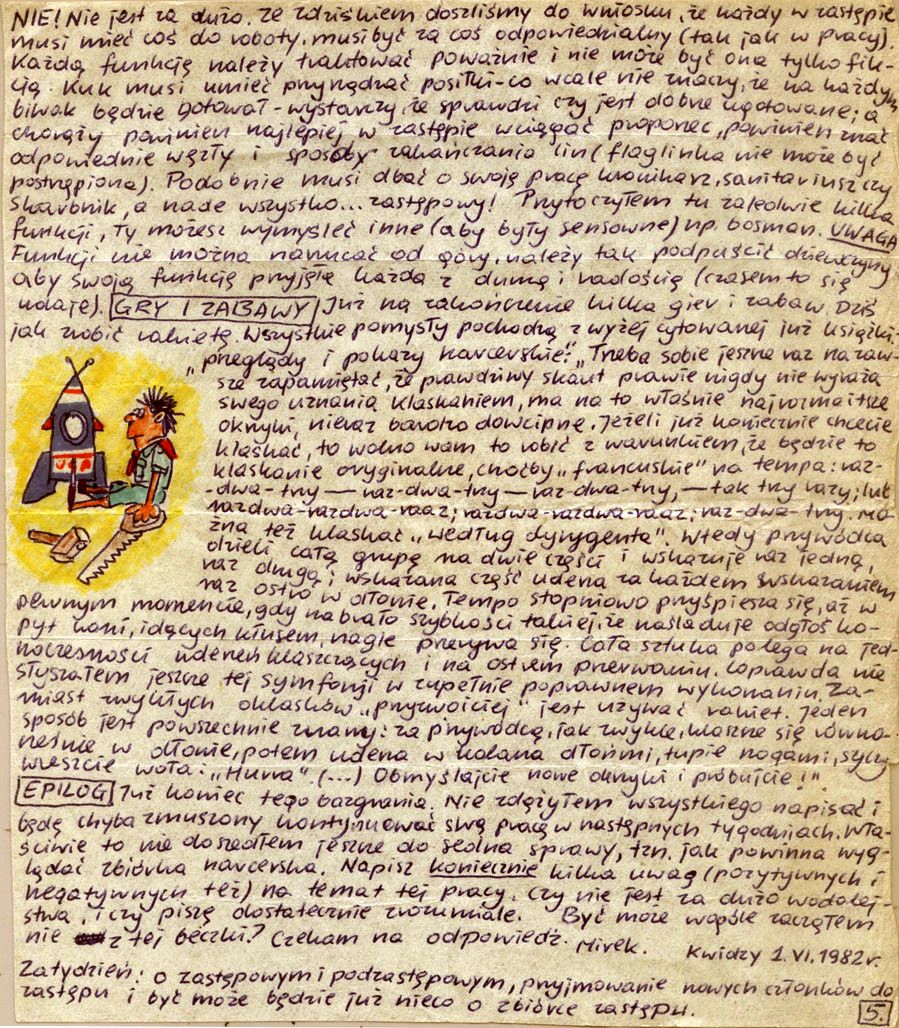 NIE! Nie jest za dużo. Ze Zdziśkiem doszliśmy do wniosku, że każdy w zastępie
musi mieć coś do roboty, musi być za coś odpowiedzialny (tak jak w pracy).
Każdą funkcję należy traktować poważnie i nie może być ona tylko fik-
cją. Kuk musi umieć przyrządzać posiłki - co wcale nie znaczy, że na każdym
biwak będzie gotował - wystarczy, że sprawdzi czy jest dobrze ugotowane; a
chorąży powinien najlepiej w zastępie wciągać proporzec, powinien znać
odpowiednie węzły i sposoby zakańczania lin (flaglinka nie może być
postrzępiona). Podobnie musi dbać o swoją pracę kronikarz, sanitariusz czy
skarbnik, a nade wszystko... zastępowy! Przytoczyłem tu zaledwie kilka
funkcji, Ty możesz wymyśleć inne (aby były sensowne) np. bosman. UWAGA
Funkcji nie można narzucać od góry, należy tak podpuścić dziewczyny
aby swoją funkcję przyjęła każda z dumą i radością (czasem to się
udaje). GRY I ZABAWY Już na zakończenie kilka gier i zabaw. Dziś
jak zrobić rakietę. Wszystkie pomysły pochodzą z wyżej cytowanej już książki:
„przeglądy i pokazy harcerskie": „Trzeba sobie jeszcze raz na zaw-
sze zapamiętać, że prawdziwy skaut prawie nigdy nie wyraża
swego uznania klaskaniem, ma na to właśnie najrozmaitsze
okrzyki, nieraz bardzo dowcipne. Jeżeli już koniecznie chcecie
klaskać, to wolno wam to robić z warunkiem, że będzie to
klaskanie oryginalne, choćby „francuskie" na tempa: raz-
-dwa-trzy — raz-dwa-trzy — raz-dwa-trzy, — tak trzy razy; lub
razdwa-razdwa-raaz; razdwa-razdwa-raaz; raz-dwa-trzy. Mo-
żna też klaskać „według dyrygenta". Wtedy przywódca
dzieli całą grupę na dwie części i wskazuje raz jedną,
raz drugą; wskazana część uderza za każdem wskazaniem
raz ostro w dłonie. Tempo stopniowo przyśpiesza się, aż w
pewnym momencie, gdy nabrało szybkości takiej, że naśladuje odgłos ko-
pyt koni, idących kłusem, nagle przerywa się. Cała sztuka polega na jed-
noczesności uderzeń klaszczących i na ostrem przerwaniu. Coprawda nie
słyszałem jeszcze tej symfonji w zupełnie poprawnem wykonaniu. Za-
miast zwykłych oklasków „przyzwoiciej" jest używać rakiet. Jeden
sposób jest powszechnie znany: za przywódcą, jak zwykle, klaszcze się równo-
cześnie w dłonie, potem uderza w kolana dłońmi, tupie nogami, syczy
wreszcie woła: „Hurra". (...) Obmyślajcie nowe okrzyki i próbujcie!"
EPILOG Już koniec tego bazgrania. Nie zdążyłem wszystkiego napisać i
będę chyba zmuszony kontynuować swą pracę w następnych tygodniach. Wła-
ściwie to nie doszedłem jeszcze do sedna sprawy, tzn. jak powinna wyg-
lądać zbiórka harcerska. Napisz koniecznie kilka uwag (pozytywnych i
negatywnych też) na temat tej pracy. Czy nie jest za dużo wodolej-
stwa, i czy piszę dostatecznie zrozumiale. Być może wogóle zacząłem
nie z tej beczki? Czekam na odpowiedź. Mirek. Kwidzy 1.VI.1982r.
Za tydzień: o zastępowym i podzastępowym, przyjmowanie nowych członków do
zastępu i być może będzie już nieco o zbiórce zastępu.
5.